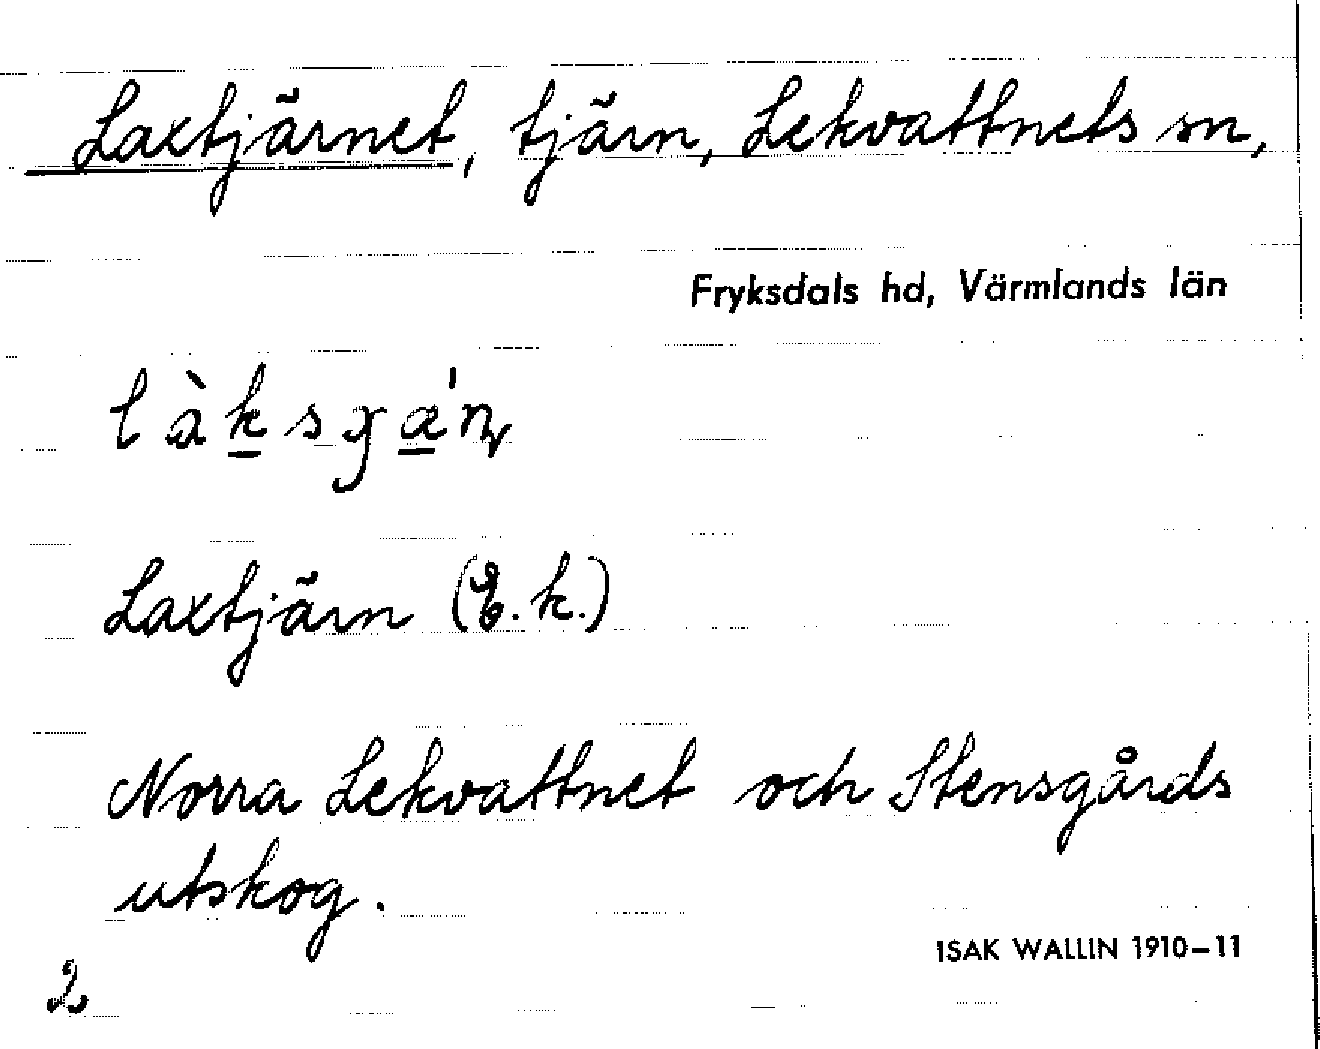 Laxtjärnet, tjärn, Lekvattnets sn,
Fryksdals hd, Värmlands län
Laxtjärn (E.k.)
Norra Lekvattnet och Stensgårds
utskog.
ISAK WALLIN 1910–11
2